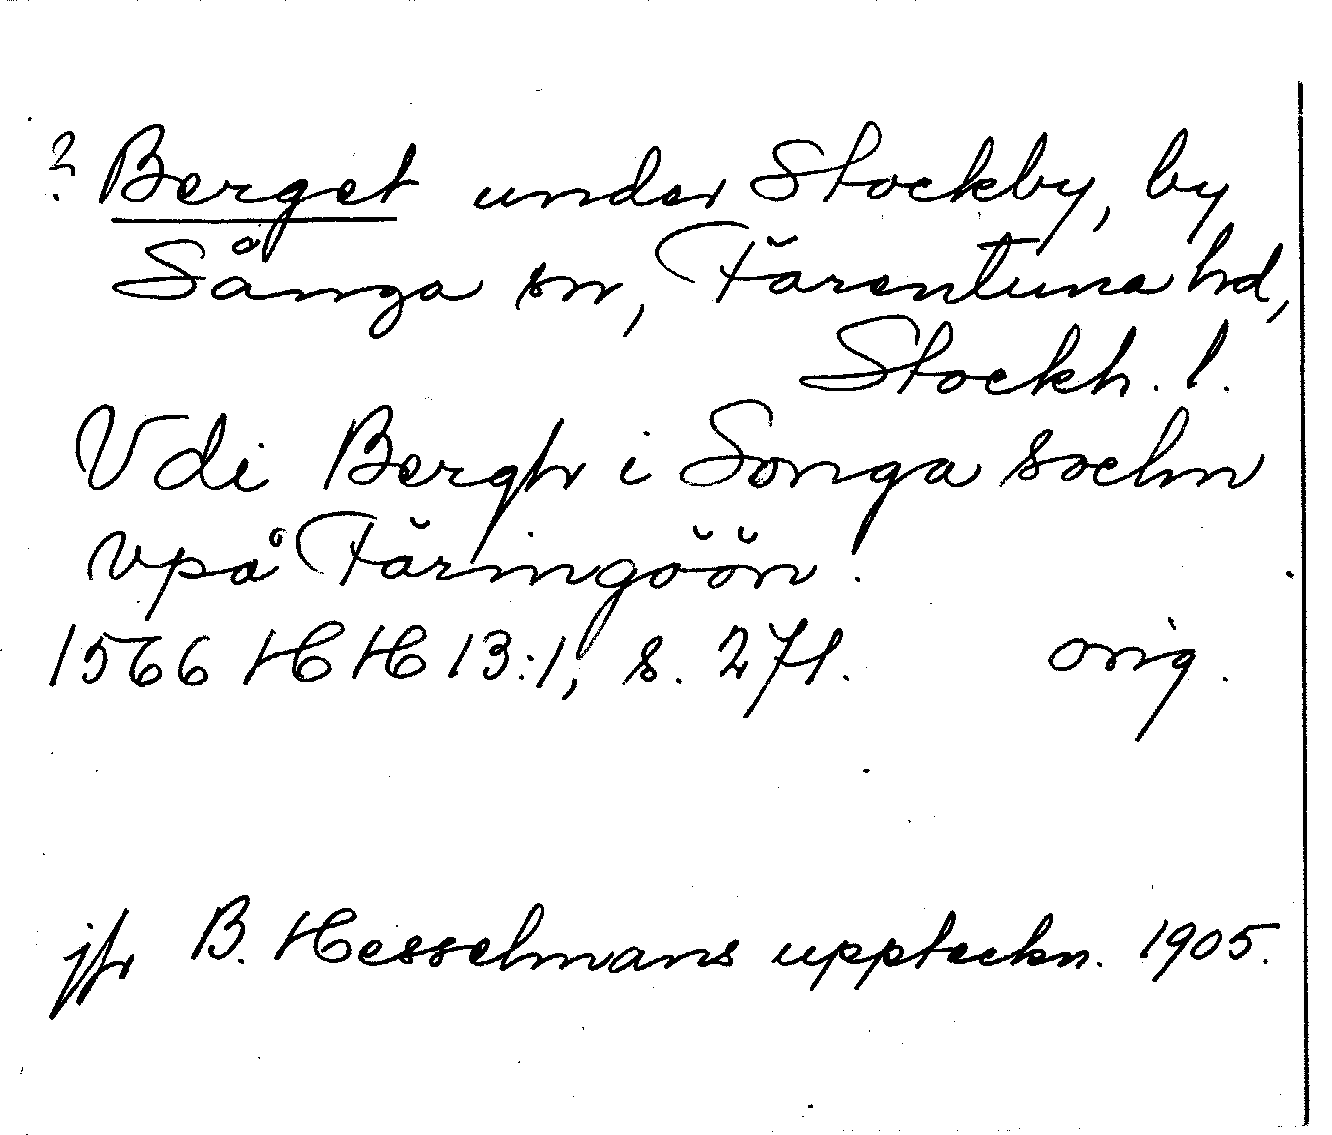 ? Berget under Stockby, by
Sånga sn, Färentuna hd,
Stockh. l.
Vdi Bergh i Songa sochn
vpå Färingöön.
1566 HH 13:1, s. 271. orig.
jfr B. Hesselmans uppteckn. 1905.